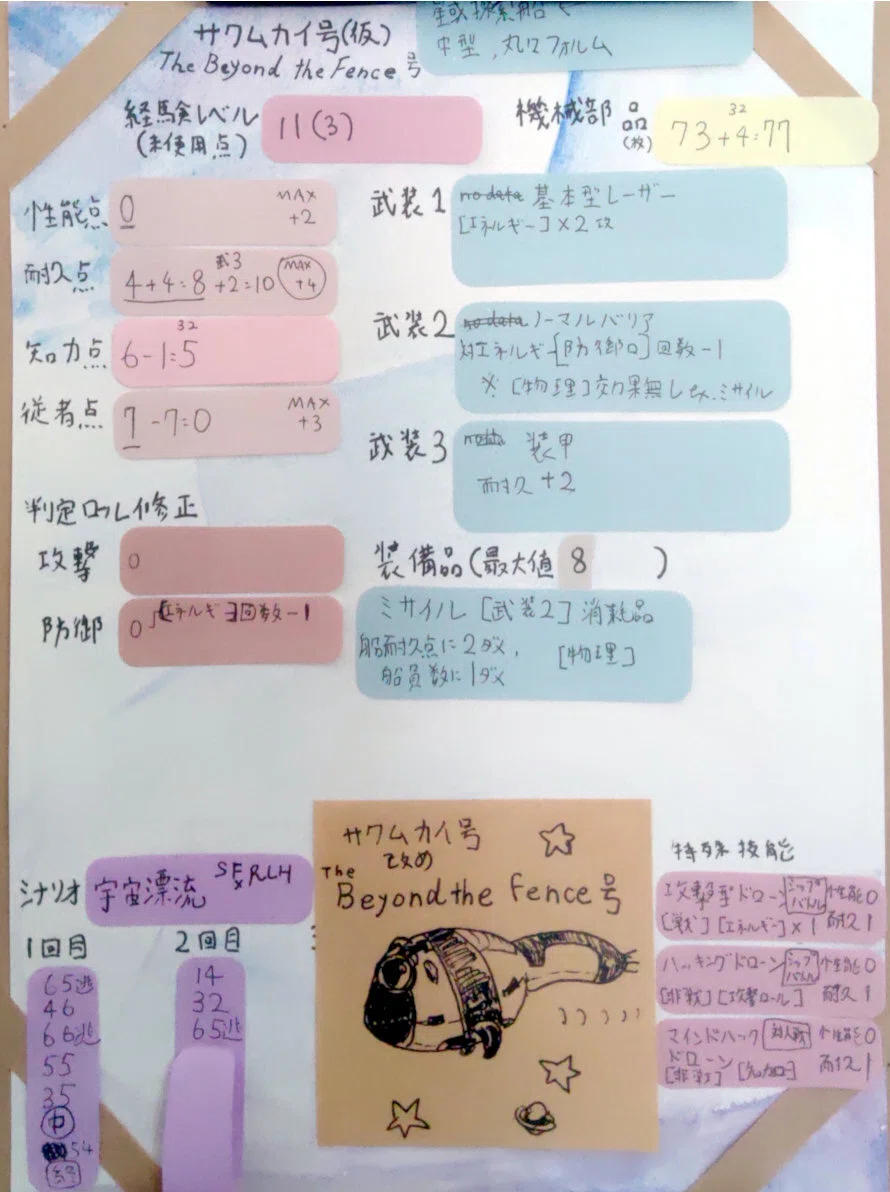 サワムカイ号(仮)
The Beyond the Fence 号
中型、丸いフォルム
経験レベル
(未使用点)
11(3)
機械部品
(枚)
32
73+4=77
性能点
0
MAX
+2
耐久点
4+4=8 +2=10
武3
MAX
+4
知力点
32
6-1=5
従者点
7-7=0
MAX
+3
武装1
no data 基本型レーザー
[エネルギー]×2攻
武装2
no data ノーマルバリア
対エネルギー[防御ロ]回数-1
※[物理]効果無し ex.ミサイル
武装3
装甲
耐久+2
判定ロール修正
攻撃
0
防御
0 [エネルギー]回数-1
装備品(最大値 8 )
ミサイル[武装2]消耗品
船耐久点に2ダメ、
船員数に1ダメ
[物理]
シナリオ
宇宙漂流
1回目
65逃
46
66逃
55
35
中
54
2回目
14
32
65逃
サワムカイ号
改め
The
Beyond the Fence号
特殊技能
攻撃型ドローン シップバトル 性能0
[戦][エネルギー]×1 耐久1
ハッキングドローン シップバトル 性能0
[非戦][攻撃ロール] 耐久1
マインドハック 対人戦 性能0
ドローン 耐久1
[非戦] [知力ロ]